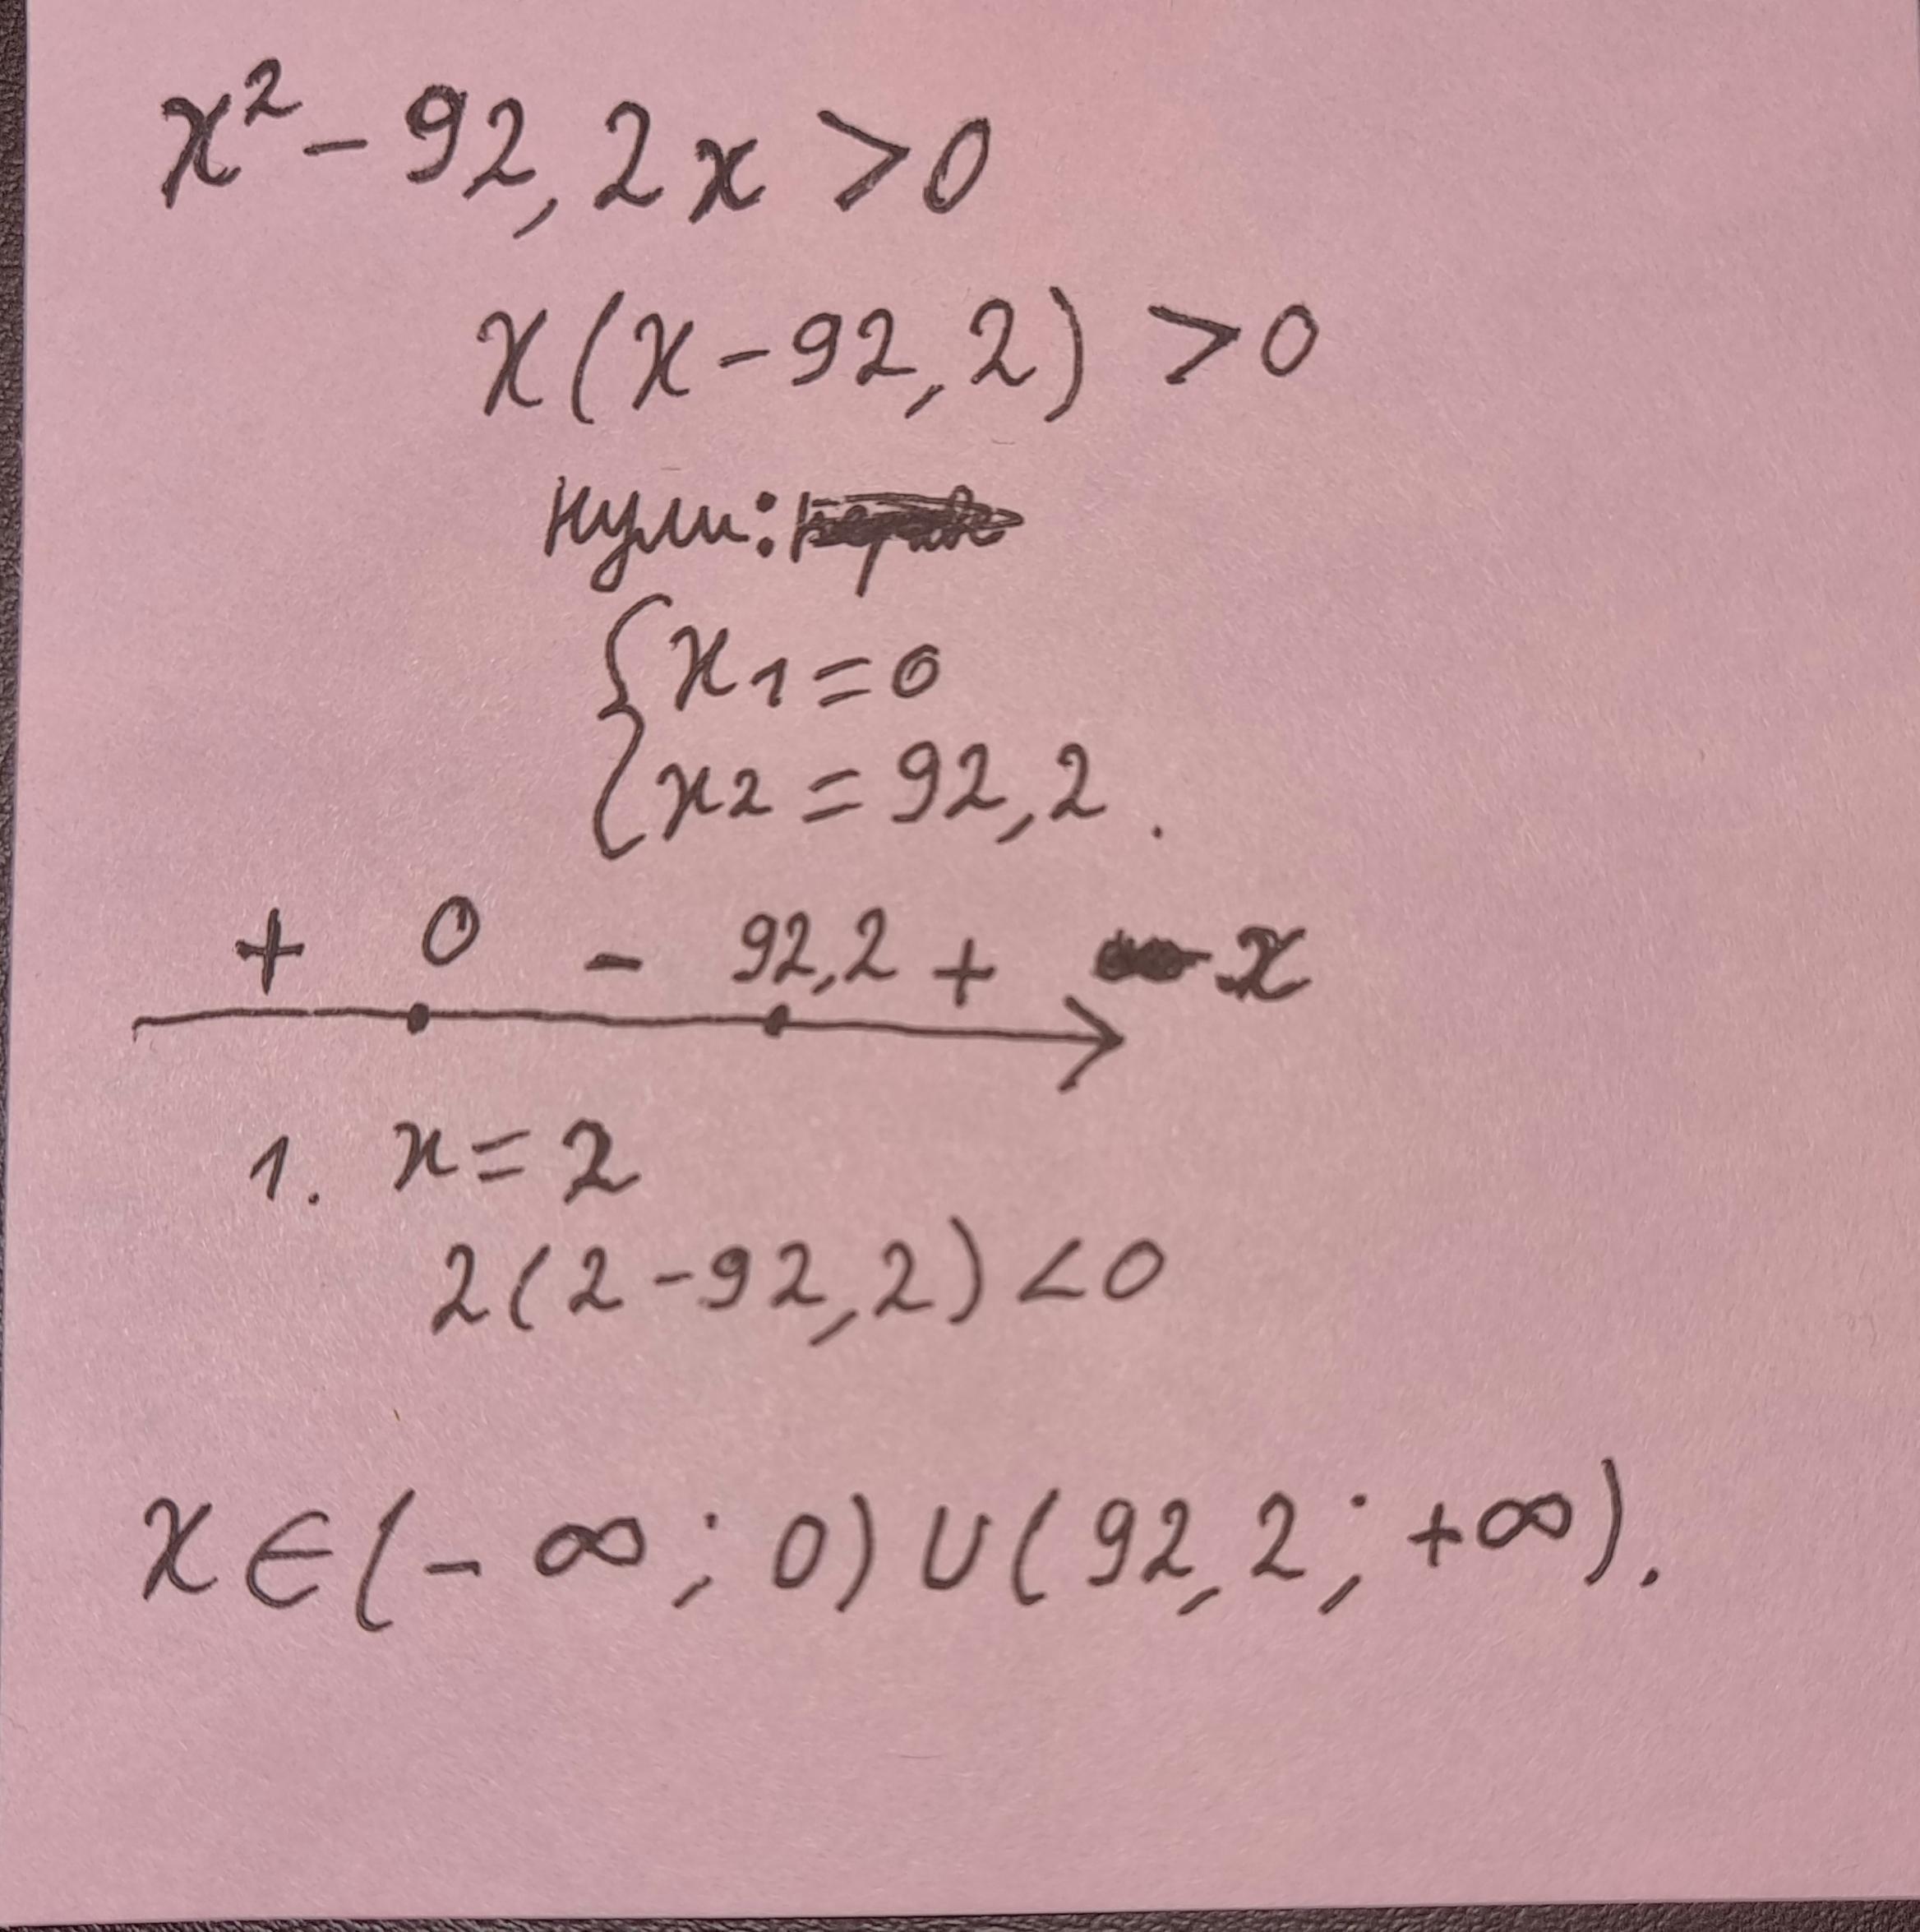 x² - 92,2x > 0
x(x - 92,2) > 0
нули:
{ x1 = 0
{ x2 = 92,2.
+ 0 - 92,2 + x
1. x = 2
2(2 - 92,2) < 0
x ∈ (-∞; 0) ∪ (92,2; +∞).